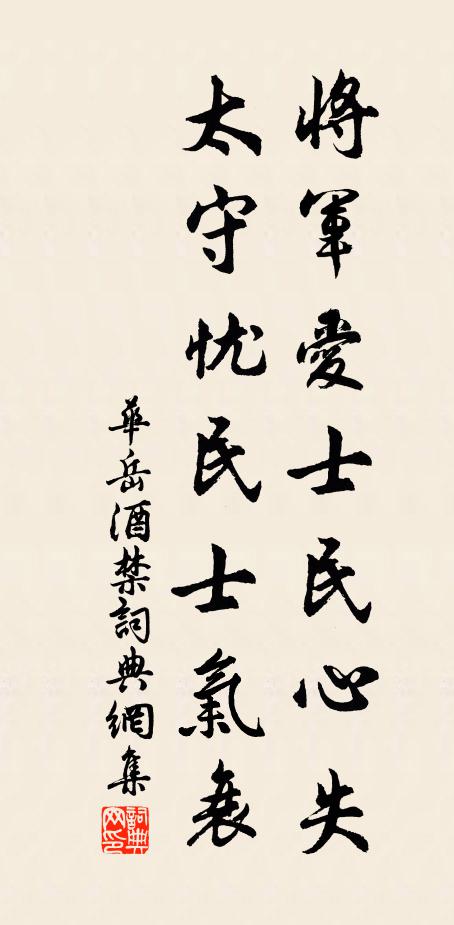 將軍愛士民心失
太守忧民士氣衰
華岳酒禁詞典網集
詞典网印